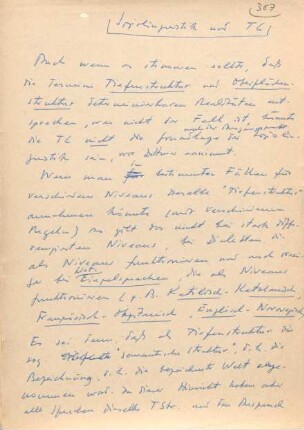 367
Soziolinguistik und TG
Auch wenn es stimmen sollte, daß
die Termini Tiefenstruktur und Oberflächen-
struktur determinierbaren Realitäten ent-
sprechen, was nicht der Fall ist, könnte
die TG nicht die Grundlage der Soziolin-
guistik sein, wie Dittmar annimmt.
Wenn man in bestimmten Fällen für
verschiedene Niveaus dieselbe "Tiefenstruktur"
annehmen könnte (mit verschiedenen
Regeln) so gilt das nicht bei stark diffe-
renzierten Niveaus, bei Dialekten die
als Niveaus funktionieren und noch weni-
ger bei Sprachen, die als Niveaus
funktionieren (z.B. Katalanisch,
Französisch - Englisch - Norwegisch
Es sei denn, daß als Tiefenstruktur die
sog "semantische Struktur", d.h. die
Bezeichnung, d.h. die bezeichnete Welt ange-
nommen wird. In dieser Hinsicht haben aber
alle Sprachen dieselbe TStr. und der Anspruch